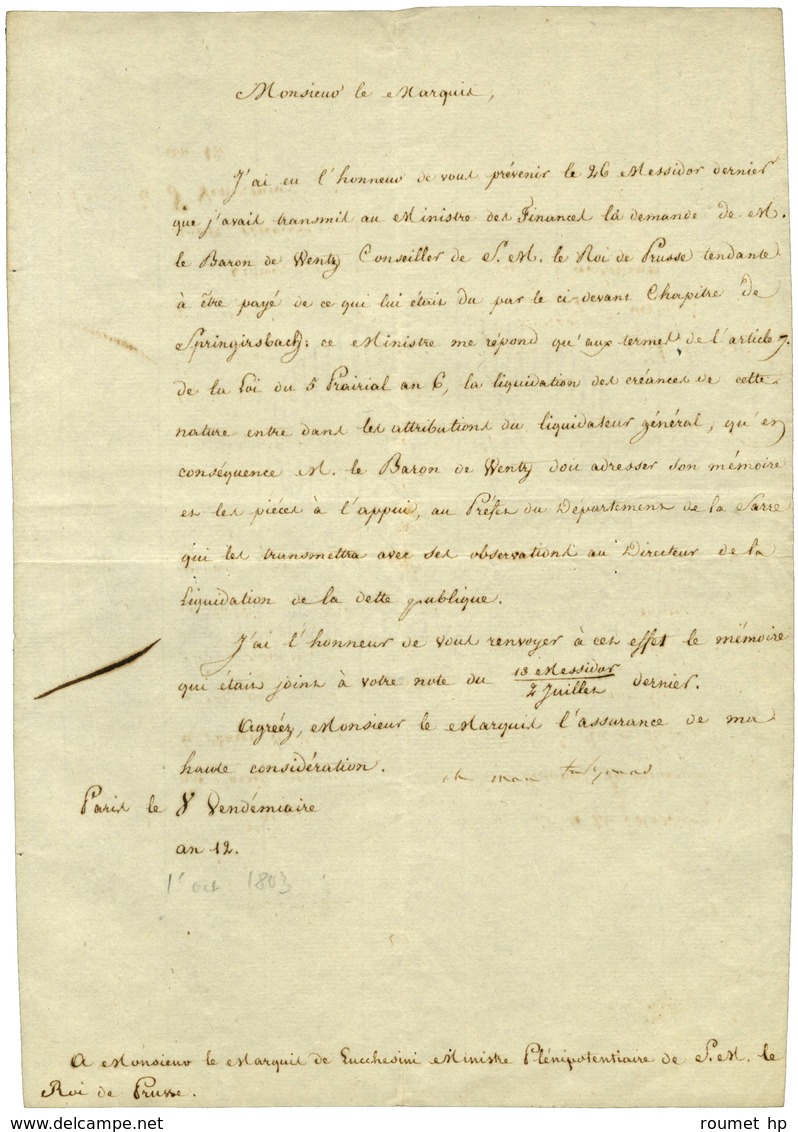 Monsieur le Marquis,
J'ai eu l'honneur de vous prévenir le 26 Messidor dernier
que j'avais transmis au Ministre des Finances la demande de M.
le Baron de Wentz Conseiller de S. M. le Roi de Prusse tendante
à être payé de ce qui lui était du par le ci-devant Chapitre de
Springirsbach; ce Ministre me répond qu'aux termes de l'article 7.
de la Loi du 5 Prairial an 6, la liquidation des créances de cette
nature entre dans les attributions du liquidateur général, qu'en
conséquence M. le Baron de Wentz doit adresser son mémoire
et les piéces à l'appui, au Préfet du Département de la Sarre
qui les transmettra avec ses observations au Directeur de la
Liquidation de la dette publique.
J'ai l'honneur de vous renvoyer à cet effet le mémoire
qui était joint à votre note du 13 Messidor / 2 Juillet dernier.
Agréez, Monsieur le Marquis l'assurance de ma
haute considération.
ch mau talleyrand
Paris le 8 Vendémiaire
an 12.
1er oct 1803
A Monsieur le Marquis de Lucchesini Ministre Plénipotentiaire de S. M. le
Roi de Prusse.
roumet hp